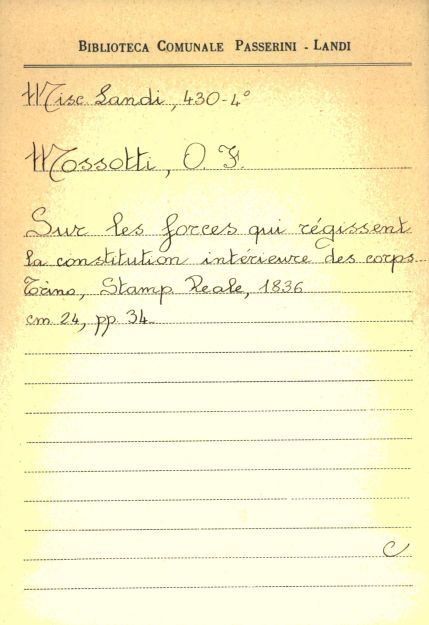 BIBLIOTECA COMUNALE PASSERINI - LANDI
Misc. Landi, 430-4°
Mossotti, O. F.
Sur les forces qui régissent
la constitution intérieure des corps
Torino, Stamp. Reale, 1836
cm. 24, pp. 34
C